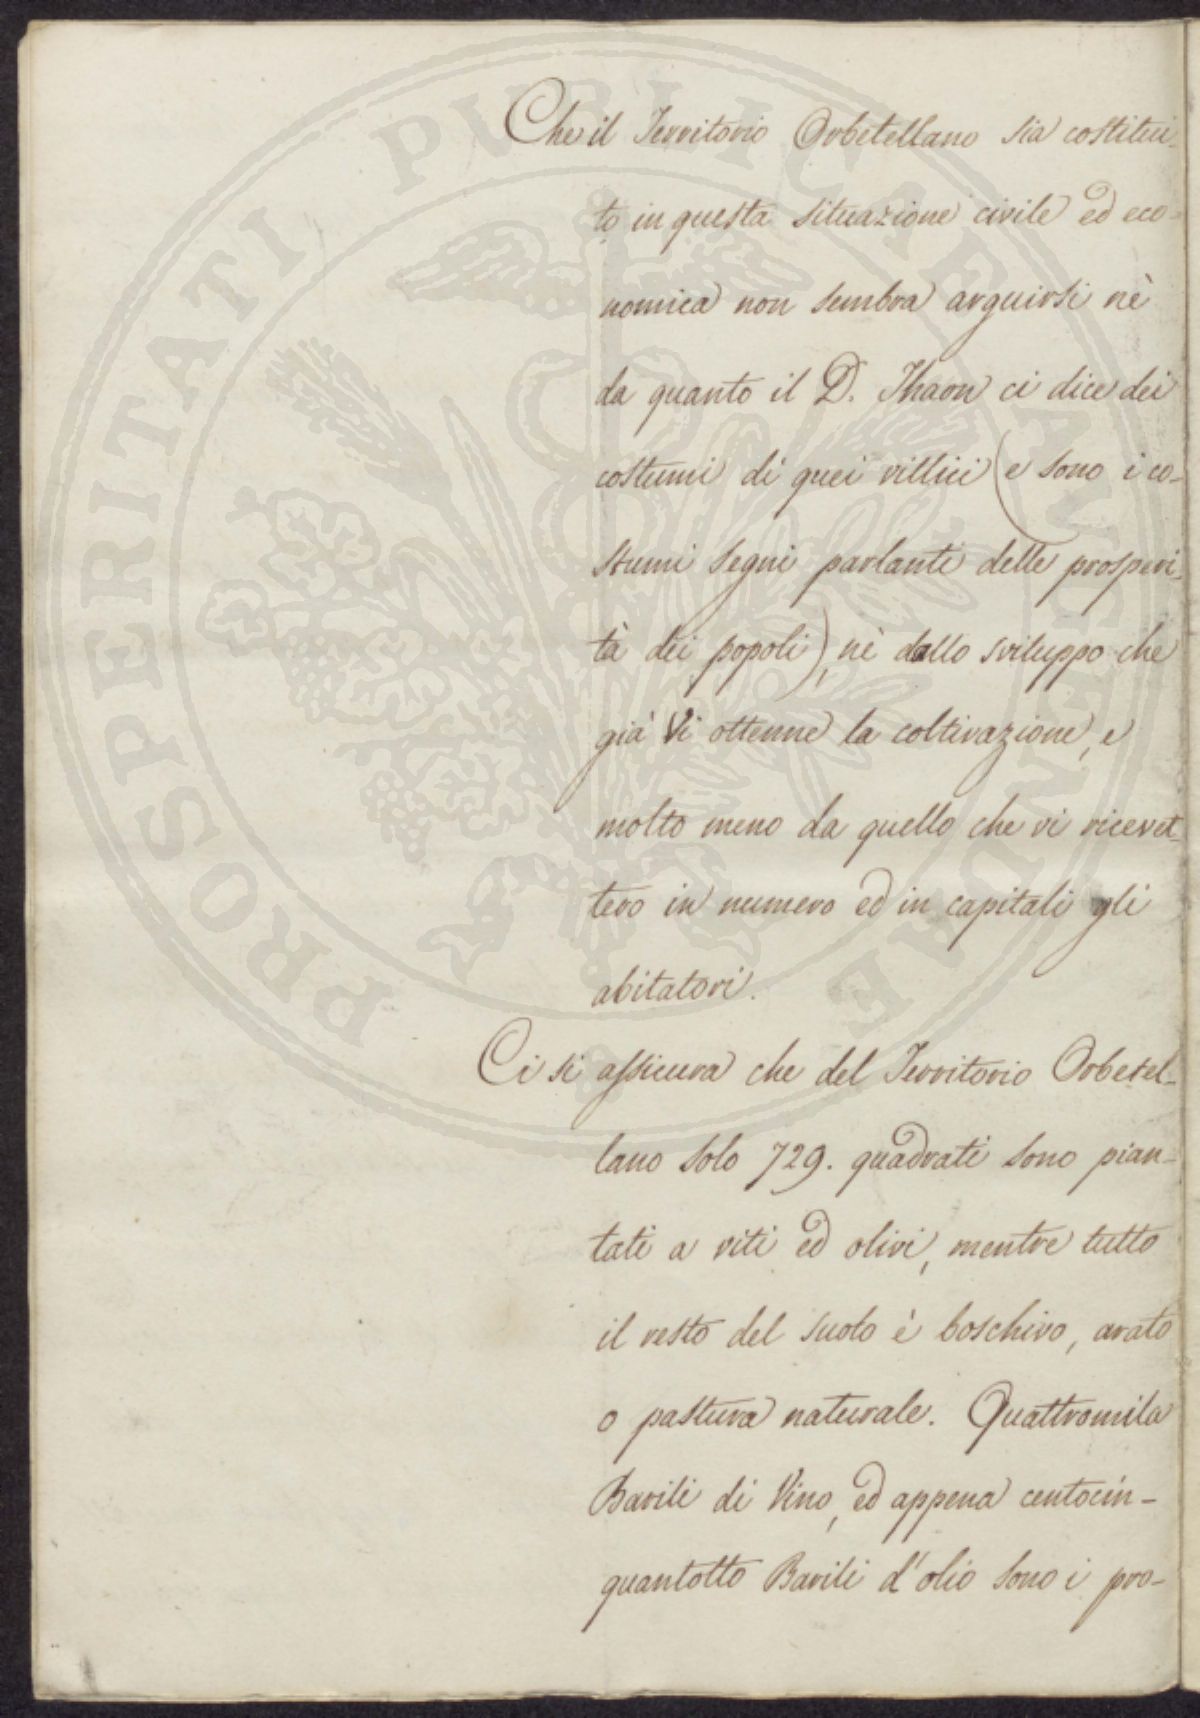 Che il Territorio Orbetellano sia costitui-
to in questa situazione civile ed eco-
nomica non sembra arguirsi nè
da quanto il D. Thaon ci dice dei
costumi di quei villici (e sono i co-
stumi segni parlanti delle prosperi-
tà dei popoli), nè dallo sviluppo che
già vi ottenne la coltivazione, e
molto meno da quello che vi ricevet-
tero in numero ed in capitali gli
abitatori.
Ci si assicura che del Territorio Orbetel-
lano solo 729. quadrati sono pian-
tati a viti ed olivi, mentre tutto
il resto del suolo è boschivo, arato
o pastura naturale. Quattromila
Barili di Vino, ed appena centocin-
quantotto Barili d'olio sono i pro-
PROSPERITATI PUBLICAE AUGENDAE